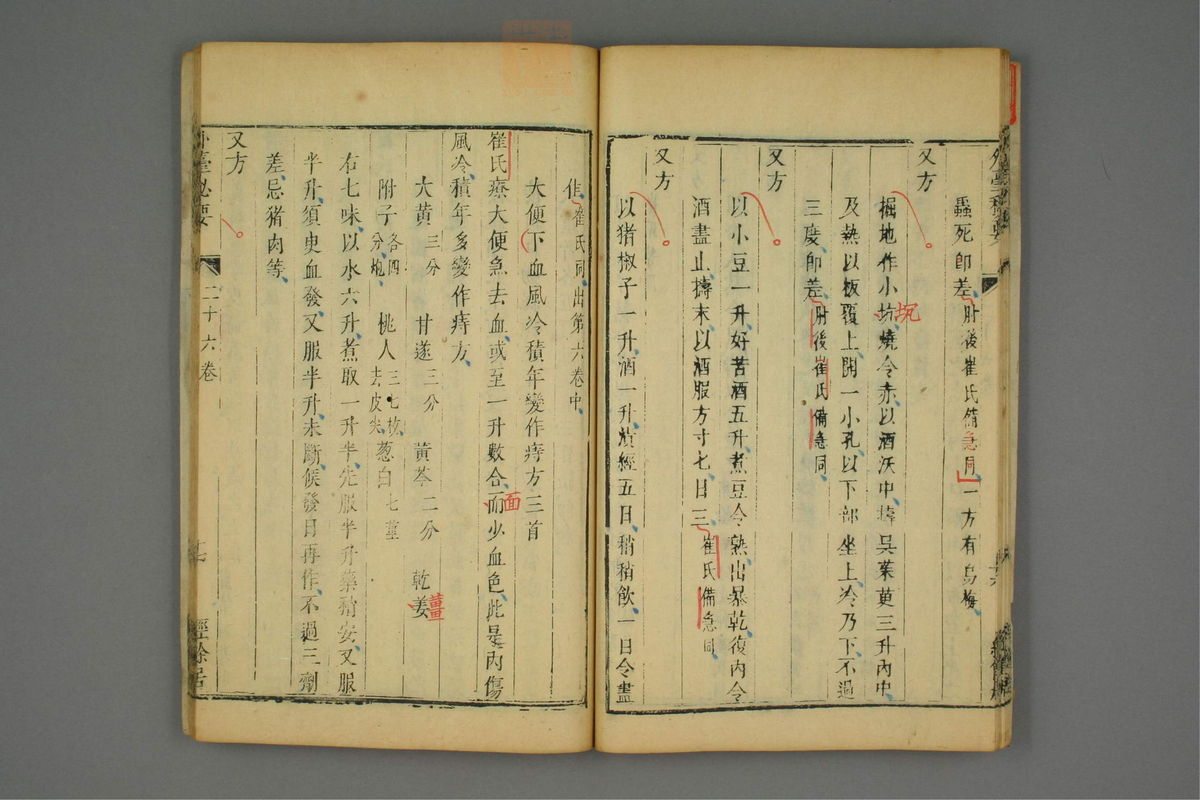 外臺秘要
蟲死即差肘後崔氏備急同一方有烏梅
又方
掘地作小坑燒令赤以酒沃中擣吳茱萸三升內中
坈
及熱以板覆上開一小孔以下部坐上冷乃下不過
三度即差肘後崔氏備急同
又方
以小豆一升好苦酒五升煮豆令熟出暴乾復內令
酒盡止擣末以酒服方寸匕日三崔氏備急同
又方
以猪椒子一升酒一升漬經五日稍稍飲一日令盡
佳崔氏同出第六卷中
大便下血風冷積年變作痔方三首
崔氏療大便急去血或至一升數合而少血色此是內傷
面
風冷積年多變作痔方
大黃三分 甘遂三分 黃芩二分 乾姜
薑
附子各四分炮 桃人三七枚去皮尖 葱白七莖
右七味以水六升煮取一升半先服半升藥稍安又服
半升須臾血發又服半升未斷候發日再作不過三劑
差忌猪肉等
又方
外臺秘要
二十六卷
經餘居